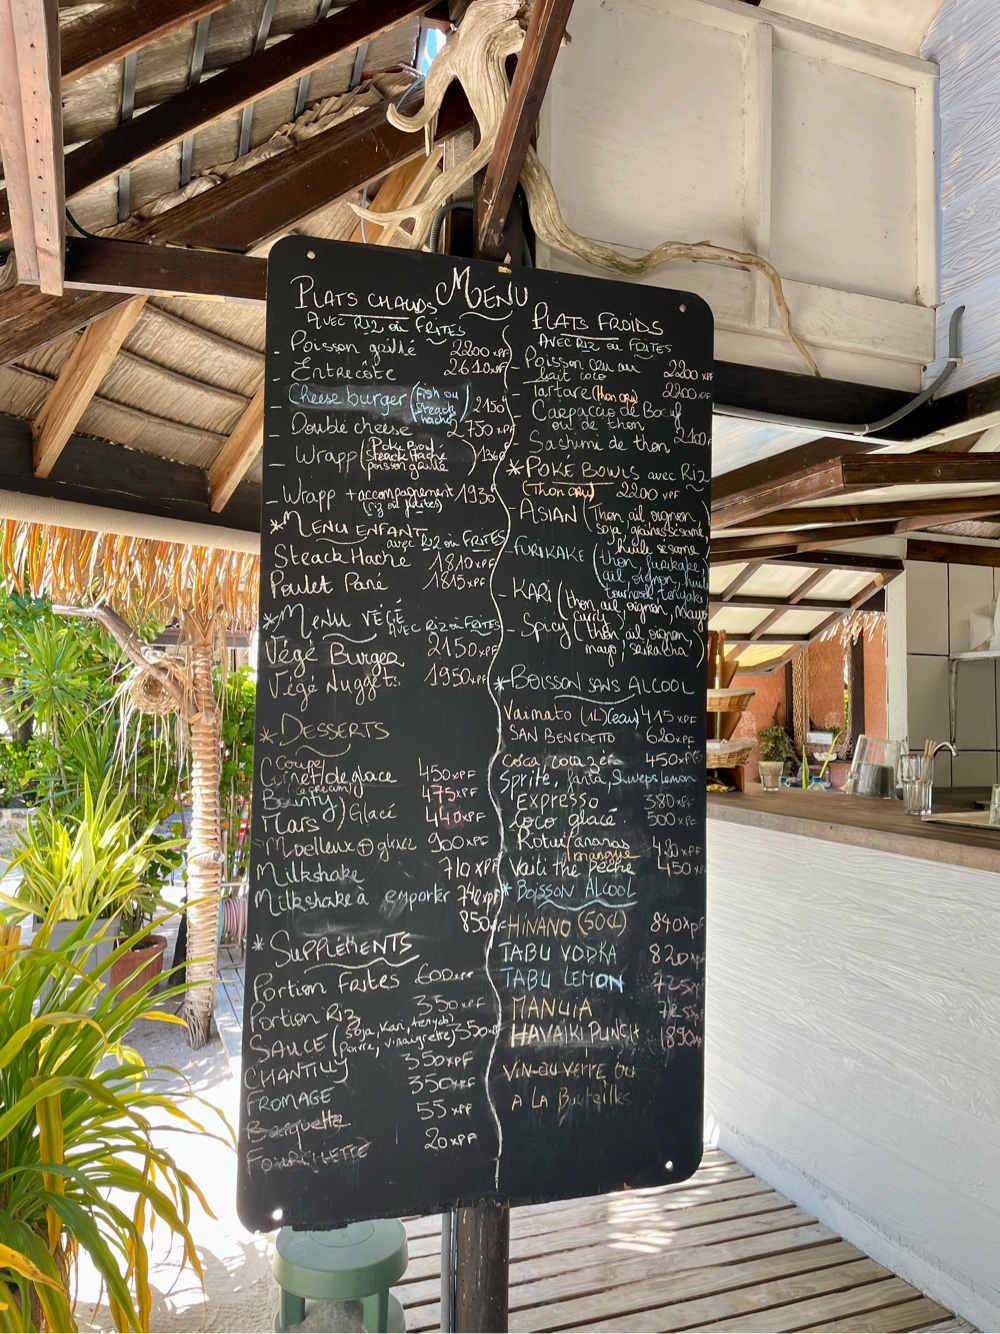 MENU
PLATS CHAUDS
AVEC RIZ ou FRITES
- Poisson grillé 2200 XPF
- Entrecôte 2610 XPF
- Cheese burger (Fish ou Steack haché) 2150
- Double cheese 2750 XPF
- Wrapp (Poké Bowl
Steack Haché
poisson grillé)
- Wrapp + accompagnement 1930
(riz ou frites)
* MENU ENFANT
avec RIZ ou FRITES
Steack Haché 1810 XPF
Poulet Pané 1815 XPF
* MENU VÉGÉ
AVEC RIZ ou FRITES
Végé Burger 2150 XPF
Végé Nuggets 1950 XPF
* DESSERTS
Coupe
Cornet de glace 450 XPF
Bounty 475 XPF
Mars ) Glacé 440 XPF
Moelleux + glace 900 XPF
Milkshake 710 XPF
Milkshake à emporter 740 XPF
850
* SUPPLÉMENTS
Portion Frites 600 XPF
Portion Riz 350 XPF
SAUCE (Soja, Kari, teriyaki
Poivre, vinaigrette) 350
CHANTILLY 350 XPF
FROMAGE 350 XPF
Barquette 55 XPF
FOURCHETTE 20 XPF
PLATS FROIDS
AVEC RIZ ou FRITES
- Poisson cru au
lait coco 2200 XPF
- Tartare (thon cru) 2200 XPF
- Carpaccio de Boeuf
ou de thon 2100
- Sashimi de thon
* POKÉ BOWLS avec Riz
(Thon cru) 2200 XPF
- ASIAN (Thon, ail, oignon,
soja, graines sésame,
huile sésame)
- FURIKAKE (thon, furikake,
ail, oignon, huile
tournesol, teriyaki)
- KARI (thon, ail, oignon, mayo
curry)
- SPICY (thon, ail, oignon,
mayo, sriracha)
* BOISSON SANS ALCOOL
Vaimato (1L) (eau) 415 XPF
SAN BENEDETTO 620 XPF
coca, coca zéro 450 XPF
Sprite, fanta, Sweps lemon
Expresso 380 XPF
Coco glacé 500 XPF
Rotui ananas
mangue 420 XPF
Vaiti thé pêche 450 XPF
* BOISSON ALCOOL
HINANO (50CL) 840 XPF
TABU VODKA 820 XPF
TABU LEMON
MANUIA
HAVAIKI PUNCH
VIN au VERRE OU
A LA Bouteilles